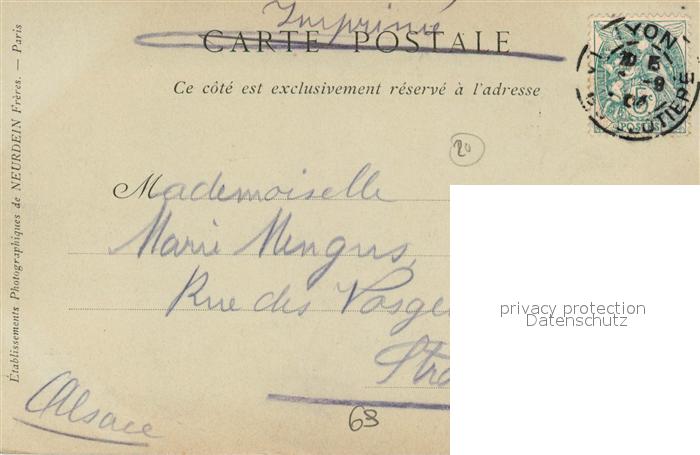 Imprimé
CARTE POSTALE
Ce côté est exclusivement réservé à l'adresse
LYON
5
9
POSTES
20
Mademoiselle
Marie Mengus
Rue des Vosge
privacy protection
Datenschutz
Stra
Alsace
63
Établissements Photographiques de NEURDEIN Frères. — Paris